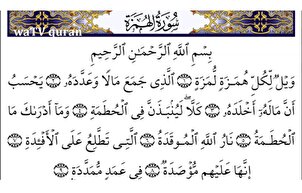 waTV quran
سُورَةُ الهُمَزَةِ
بِسْمِ اللَّهِ الرَّحْمَٰنِ الرَّحِيمِ
وَيْلٌ لِّكُلِّ هُمَزَةٍ لُّمَزَةٍ ۝١ الَّذِي جَمَعَ مَالًا وَعَدَّدَهُۥ ۝٢ يَحْسَبُ
أَنَّ مَالَهُۥٓ أَخْلَدَهُۥ ۝٣ كَلَّا ۖ لَيُنۢبَذَنَّ فِي الْحُطَمَةِ ۝٤ وَمَآ أَدْرَىٰكَ مَا
الْحُطَمَةُ ۝٥ نَارُ اللَّهِ الْمُوقَدَةُ ۝٦ الَّتِي تَطَّلِعُ عَلَى الْأَفْـِٔدَةِ ۝٧
إِنَّهَا عَلَيْهِم مُّؤْصَدَةٌ ۝٨ فِي عَمَدٍ مُّمَدَّدَةٍ ۝٩